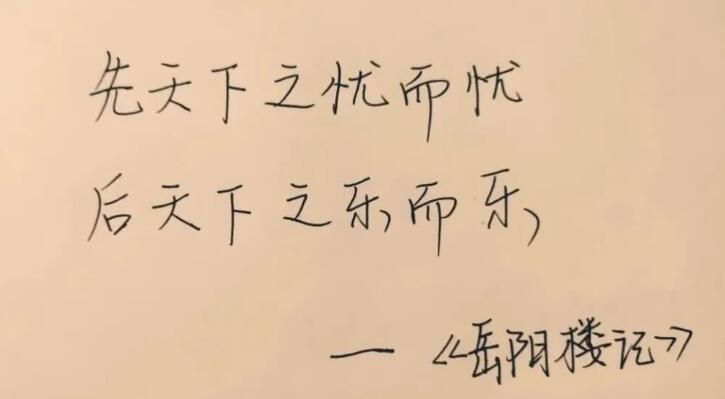 先天下之忧而忧
后天下之乐而乐
—《岳阳楼记》